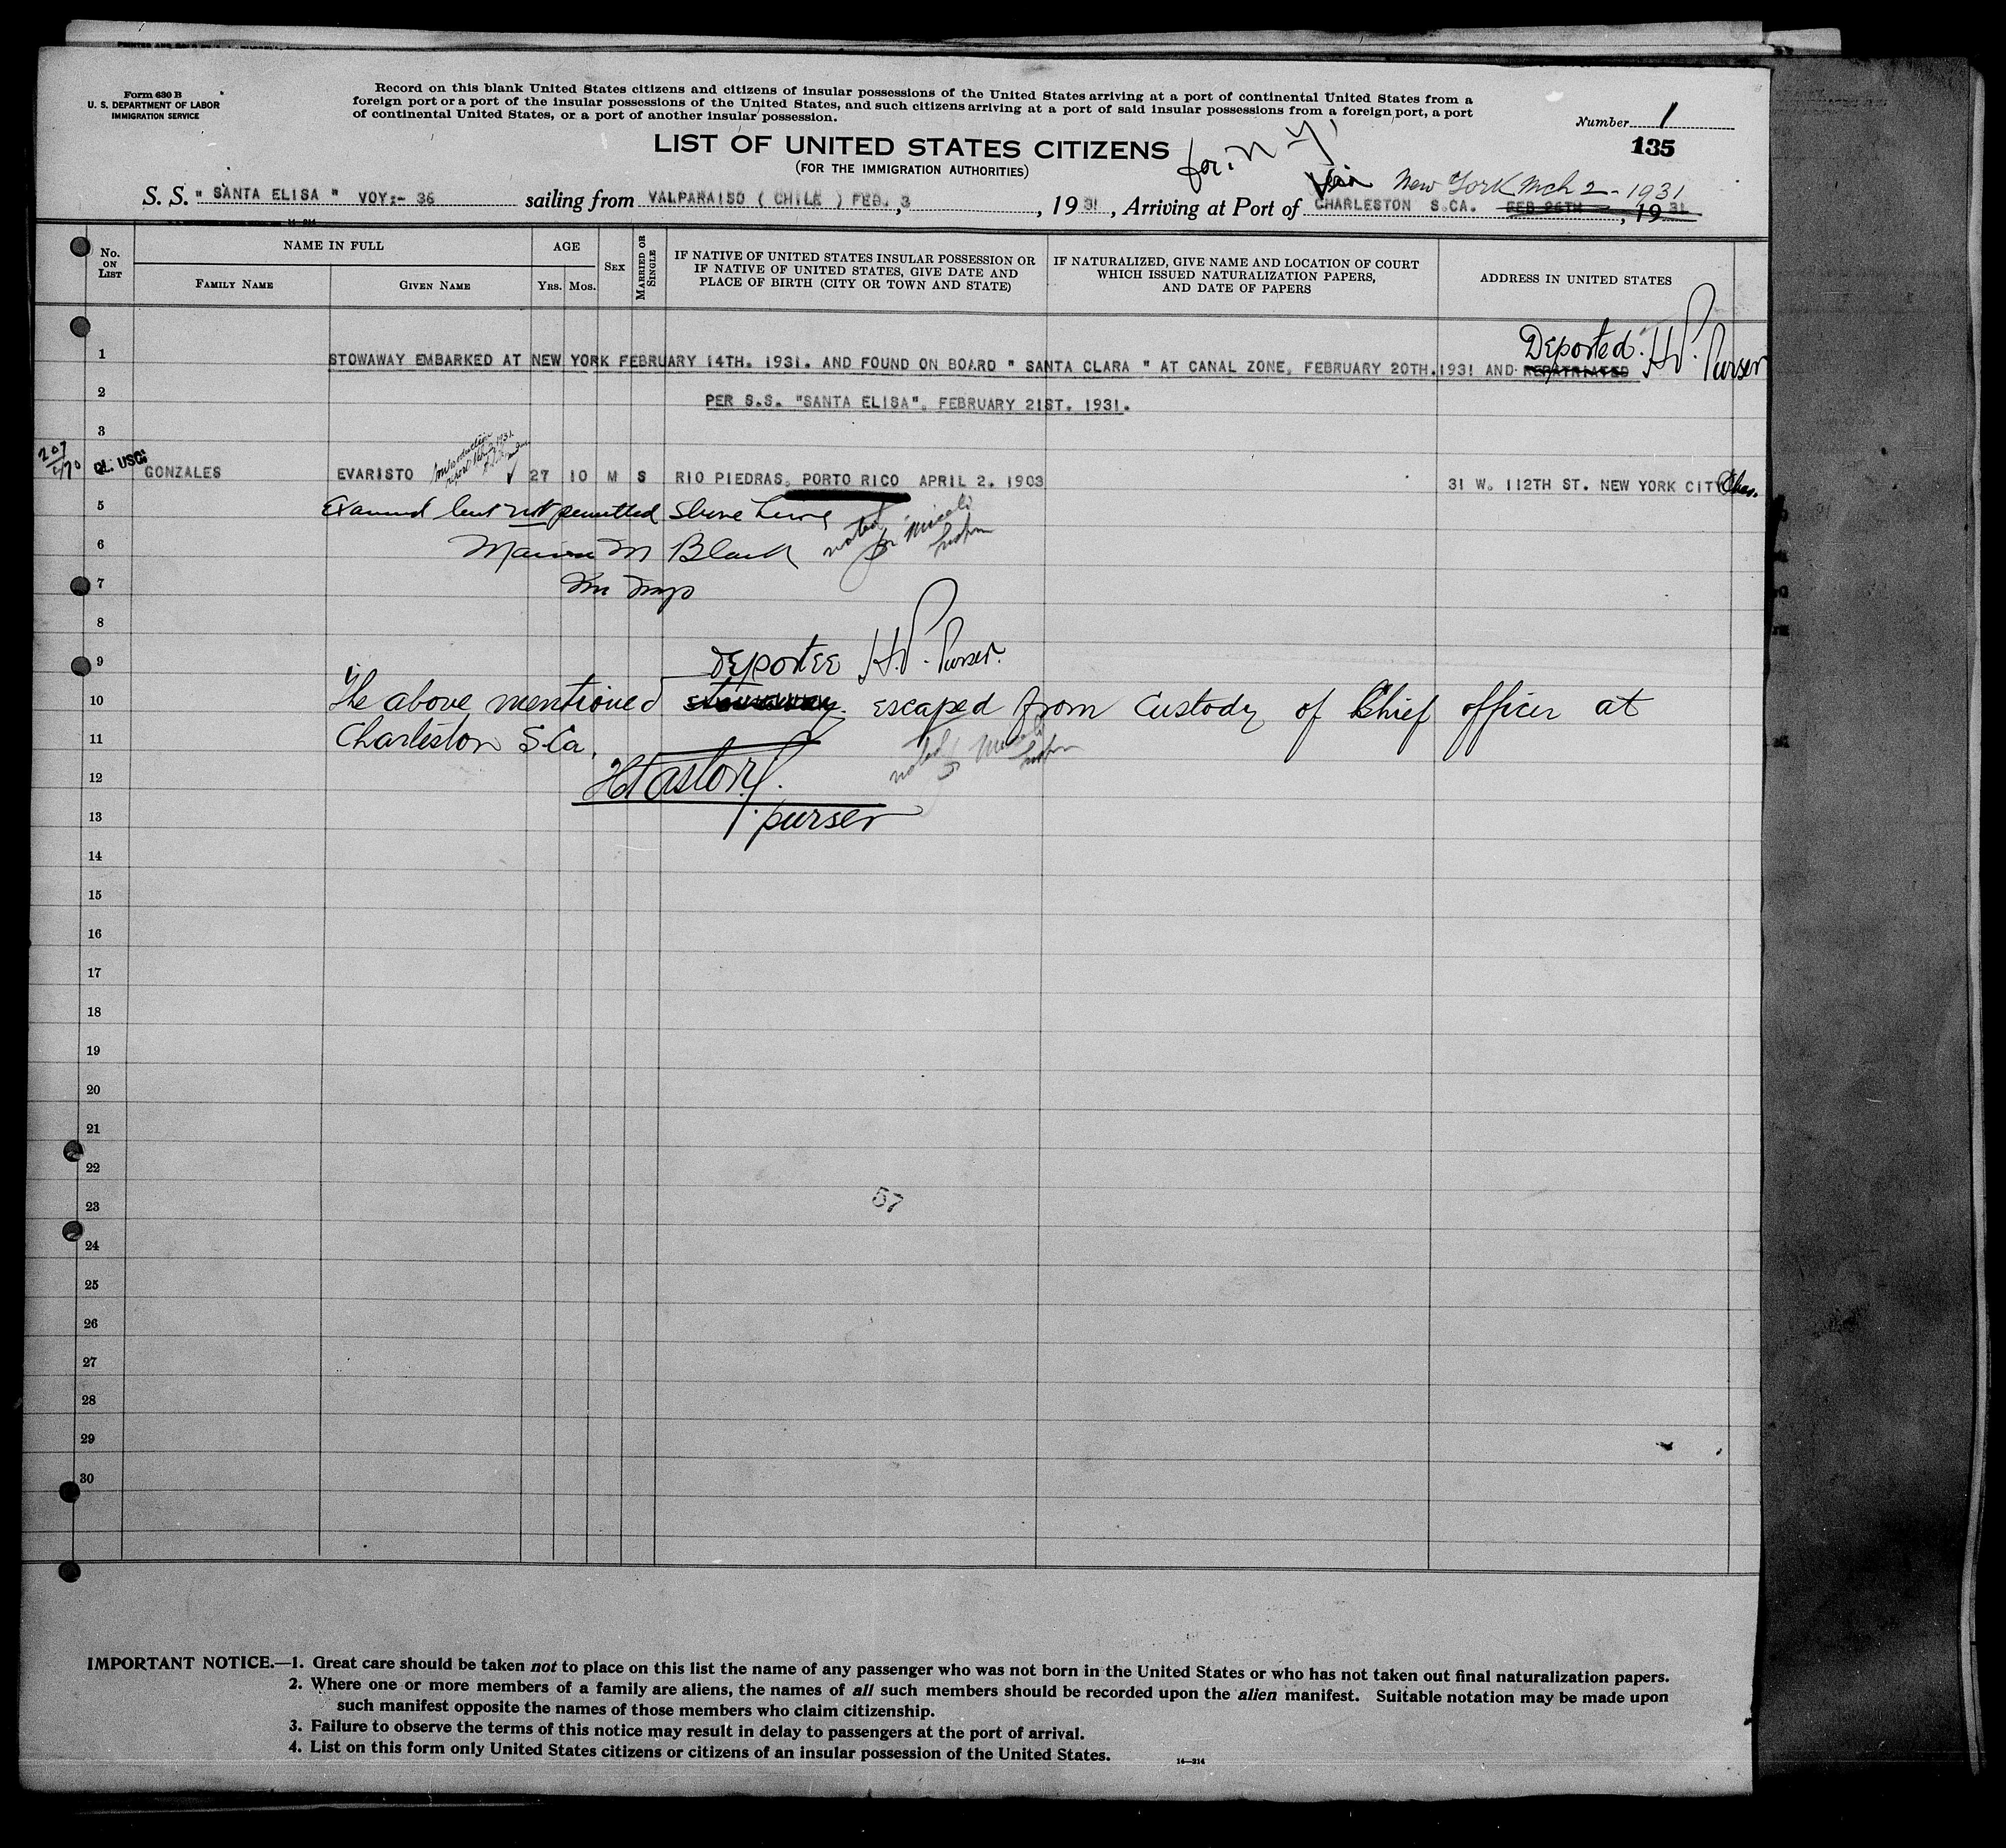 Form 630 B
U. S. DEPARTMENT OF LABOR
IMMIGRATION SERVICE
Record on this blank United States citizens and citizens of insular possessions of the United States arriving at a port of continental United States from a
foreign port or a port of the insular possessions of the United States, and such citizens arriving at a port of said insular possessions from a foreign port, a port
of continental United States, or a port of another insular possession.
Number 1
135
LIST OF UNITED STATES CITIZENS
(FOR THE IMMIGRATION AUTHORITIES)
for N Y
via New York Mch 2 - 1931
S. S. " SANTA ELISA " VOY:- 36 sailing from VALPARAISO ( CHILE ) FEB. 3, 1931, Arriving at Port of CHARLESTON S.CA. FEB 26TH, 1931
No. ON LIST
NAME IN FULL
FAMILY NAME
GIVEN NAME
AGE
YRS. MOS.
SEX
MARRIED OR SINGLE
IF NATIVE OF UNITED STATES INSULAR POSSESSION OR
IF NATIVE OF UNITED STATES, GIVE DATE AND
PLACE OF BIRTH (CITY OR TOWN AND STATE)
IF NATURALIZED, GIVE NAME AND LOCATION OF COURT
WHICH ISSUED NATURALIZATION PAPERS,
AND DATE OF PAPERS
ADDRESS IN UNITED STATES
Deported. H.P. Purser
1 STOWAWAY EMBARKED AT NEW YORK FEBRUARY 14TH. 1931. AND FOUND ON BOARD " SANTA CLARA " AT CANAL ZONE, FEBRUARY 20TH.1931 AND REPATRIATED
2 PER S.S. "SANTA ELISA", FEBRUARY 21ST. 1931.
3
207
QL. USC: GONZALES EVARISTO 27 10 M S RIO PIEDRAS, PORTO RICO APRIL 2. 1903 31 W. 112TH ST. NEW YORK CITY Chas.
5 Examined but not permitted Shore Leave
noted
6 M Black
7
8
9 DEPORTEE H.P. Purser.
10 The above mentioned escaped from Custody of Chief officer at
11 Charleston S.Ca.
noted
12
13 purser
14
15
16
17
18
19
20
21
22
23
57
24
25
26
27
28
29
30
IMPORTANT NOTICE.—1. Great care should be taken not to place on this list the name of any passenger who was not born in the United States or who has not taken out final naturalization papers.
2. Where one or more members of a family are aliens, the names of all such members should be recorded upon the alien manifest. Suitable notation may be made upon
such manifest opposite the names of those members who claim citizenship.
3. Failure to observe the terms of this notice may result in delay to passengers at the port of arrival.
4. List on this form only United States citizens or citizens of an insular possession of the United States.
14—214